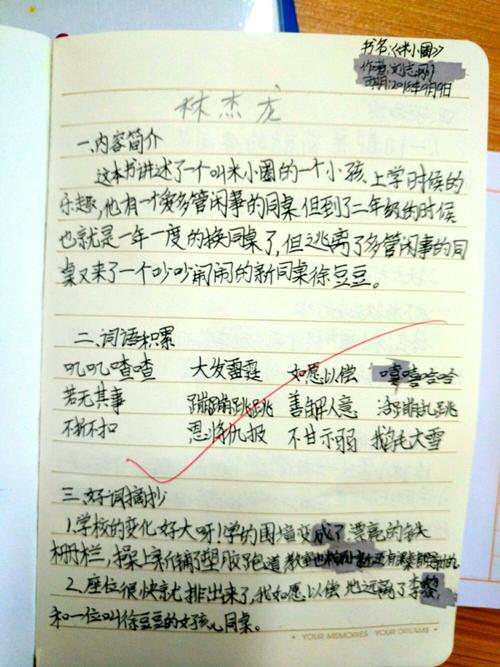 书名:《米小圈》
作者:刘志刚
日期:2018年9月9日
林杰龙
一、内容简介
这本书讲述了一个叫米小圈的一个小孩,上学时候的
乐趣,他有一个爱多管闲事的同桌但到了二年级的时候
也就是一年一度的换同桌了,但逃离了多管闲事的同
桌又来了一个吵吵闹闹的新同桌徐豆豆。
二、词语积累
叽叽喳喳 大发雷霆 如愿以偿 嘻嘻哈哈
若无其事 蹦蹦跳跳 善解人意 活蹦乱跳
不折不扣 恩将仇报 不甘示弱 鹅毛大雪
三、好词摘抄
1.学校的变化好大呀!学的围墙变成了漂亮的铁
栅栏,操上新铺了塑胶跑道
2、座位很快就排出来了,我如愿以偿地远离了李黎,
和一位叫徐豆豆的女孩儿同桌。
YOUR MEMORIES YOUR DREAMS